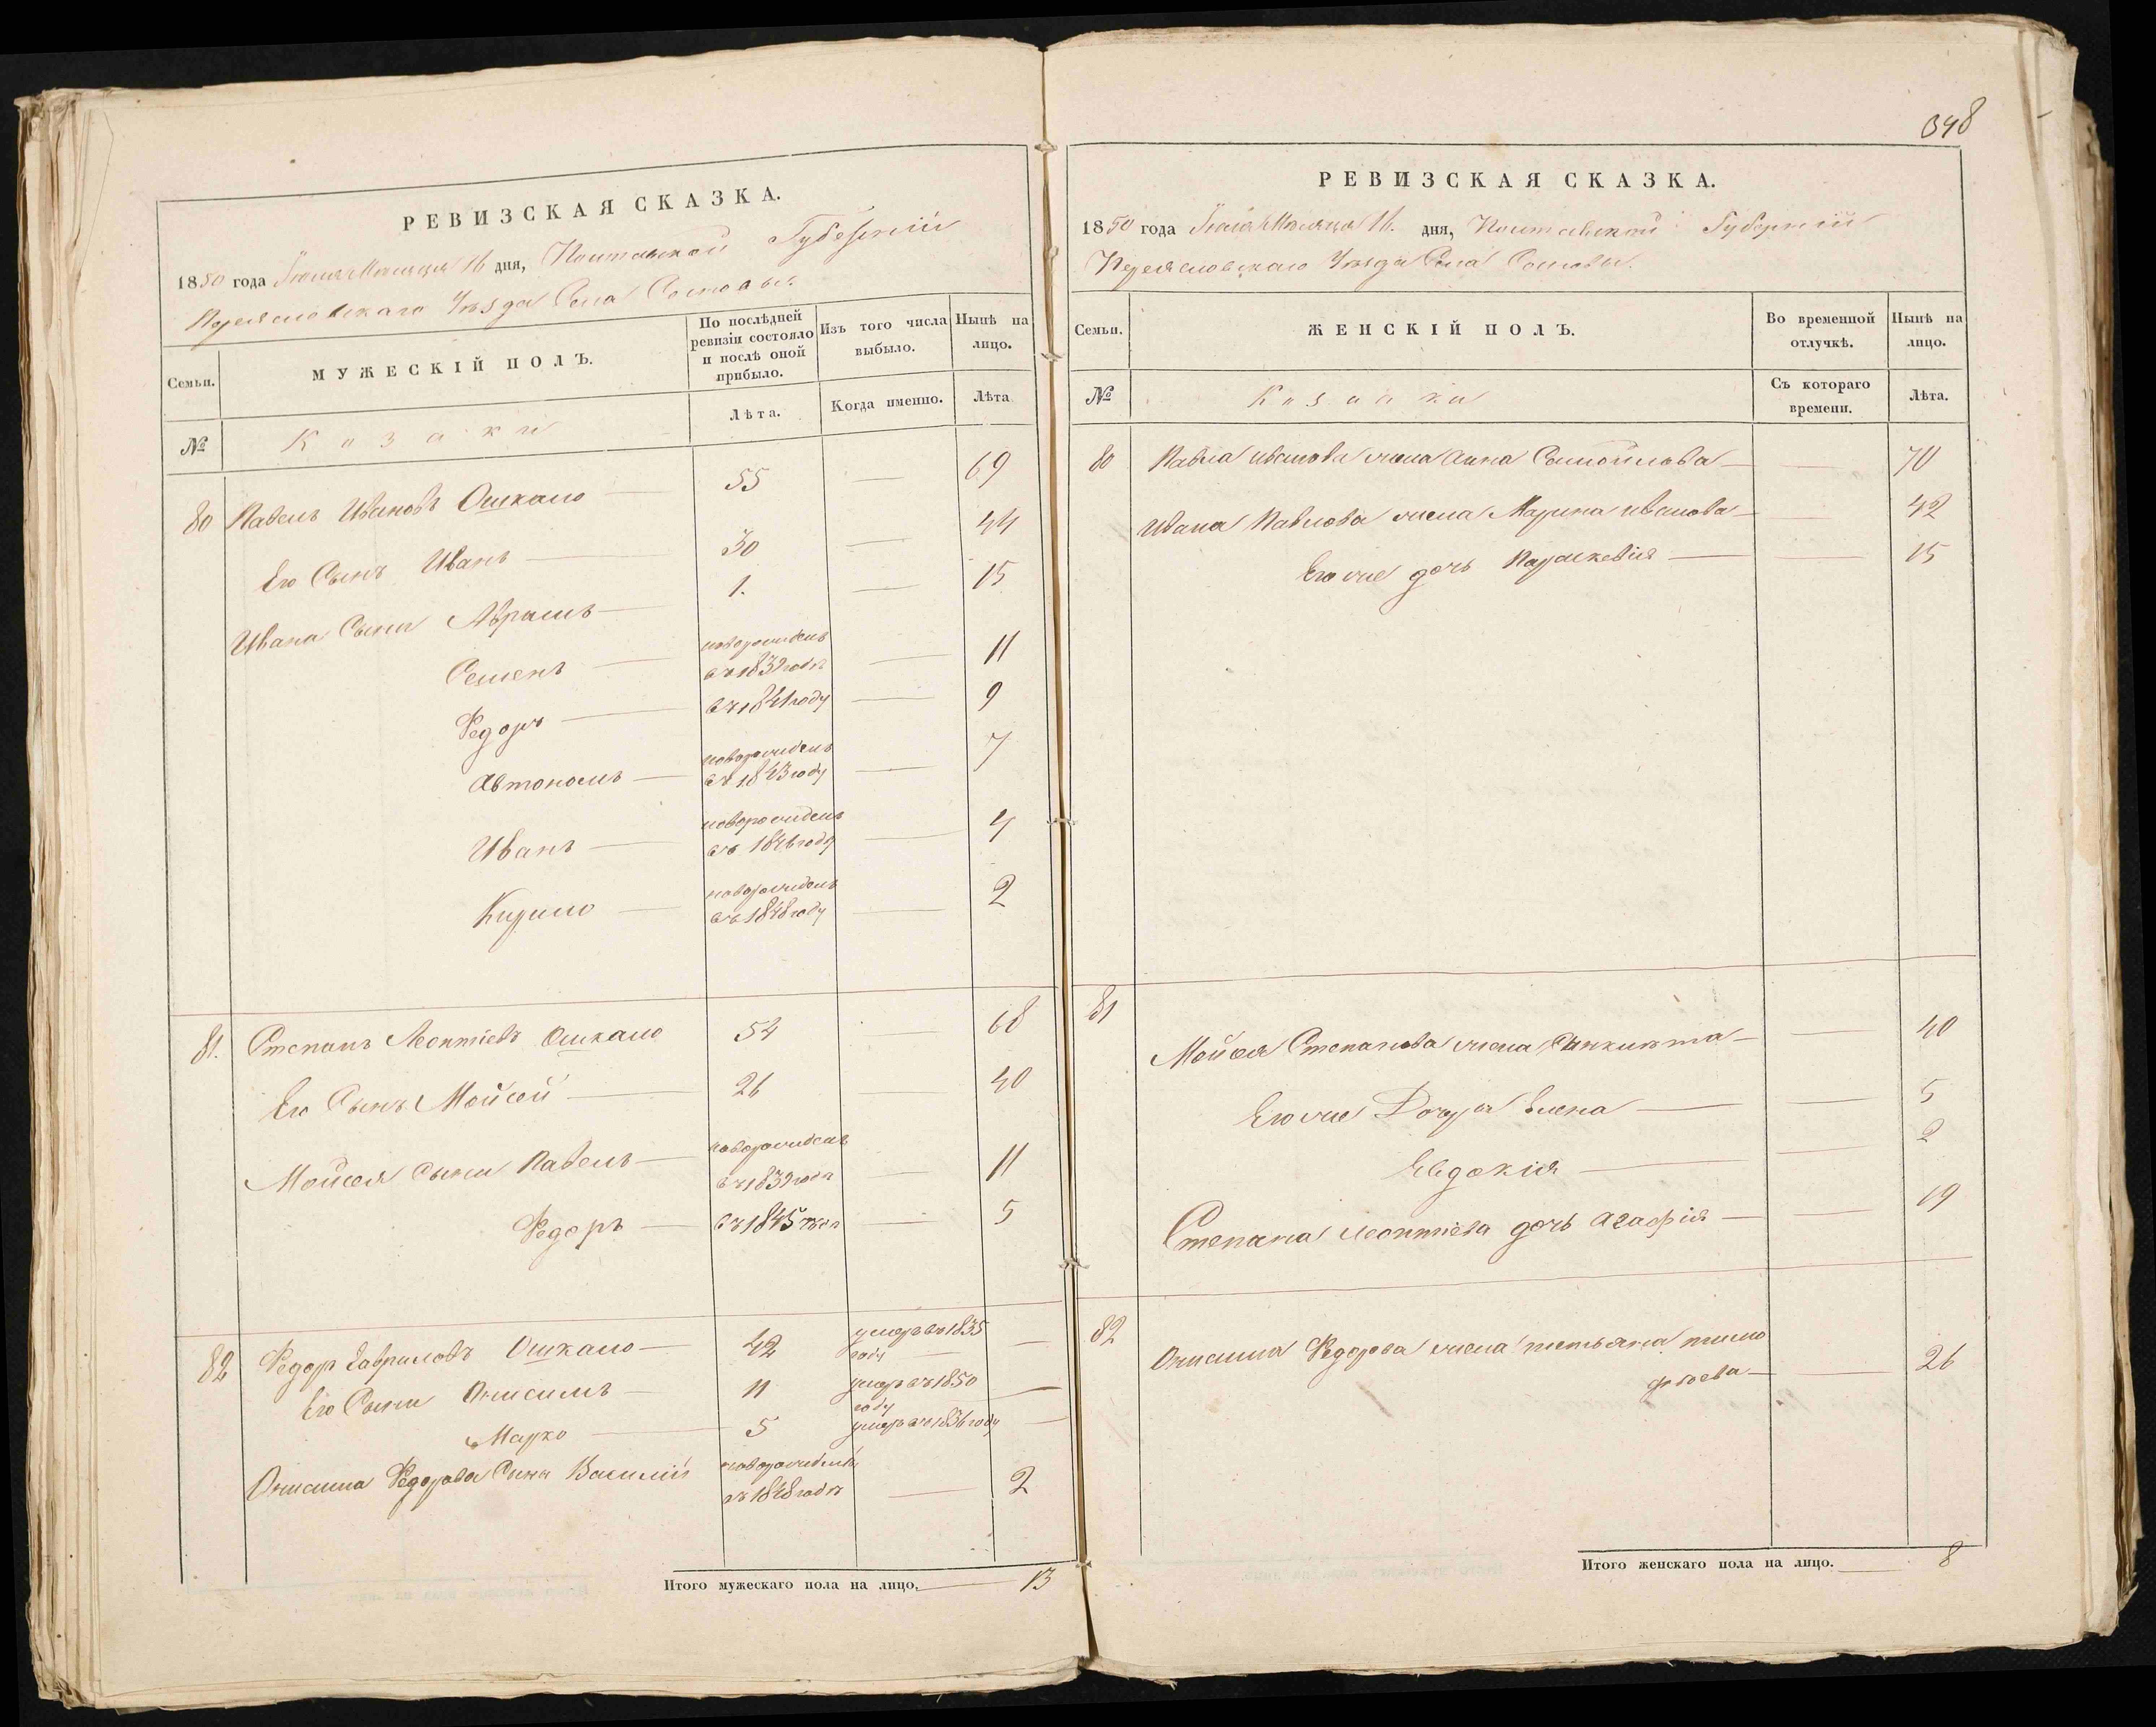 РЕВИЗСКАЯ СКАЗКА.
1850 года Іюля Месяца 16 дня, Полтавской Губерніи
Переясловскаго Уѣзда Села Сосновы.
Семьи.
МУЖЕСКІЙ ПОЛЪ.
По послѣдней ревизіи состояло и послѣ оной прибыло.
Изъ того числа выбыло.
Нынѣ на лицо.
№
Козаки
Лѣта.
Когда именно.
Лѣта
80 Павелъ Ивановъ Ошкало — 55 — 69
Его Сынъ Иванъ — 30 — 44
Ивана Сыны Аврамъ — 1. — 15
новорожденъ
Семенъ — въ 1839 годѣ — 11
Федоръ — въ 1841 году — 9
новорожденъ
Автономъ — въ 1843 году — 7
новорожденъ
Иванъ — въ 1846 году — 4
новорожденъ
Кирило — въ 1848 году — 2
81. Степанъ Леонтіевъ Ошкало 54 — 68
Его Сынъ Мойсей — 26 — 40
новорожденъ
Мойсея Сыны Павелъ — въ 1839 годѣ — 11
Федоръ — въ 1845 — 5
82 Федор Гавриловъ Ошкало — 42 умеръ въ 1835 году —
Его Сыны Онисимъ — 11 умеръ въ 1850 году —
Марко — 5 умеръ въ 1836 году —
новорожденъ
Онисима Федорова Сынъ Василій въ 1848 годѣ — 2
Итого мужескаго пола на лицо. — 13
348
РЕВИЗСКАЯ СКАЗКА.
1850 года Іюля Месяца 16. дня, Полтавской Губерніи
Переясловскаго Уѣзда Села Сосновы.
Семьи.
ЖЕНСКІЙ ПОЛЪ.
Во временной отлучкѣ.
Нынѣ на лицо.
№
Козачки
Съ котораго времени.
Лѣта.
80 Павла Иванова жена Анна Самойлова — — 70
Ивана Павлова жена Марина Иванова — — 42
Его же дочь Параскевія — — 15
81
Мойсея Степанова жена — — 40
Его же Дочеря Елена — — 5
Евдокія — — 2
Степана Леонтіева дочь Агафія — — 19
82 Онисима Федорова жена тетьяна тимо
фѣева — — 26
Итого женскаго пола на лицо. — 8